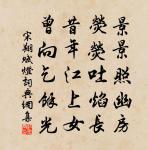 景景照幽房
熒熒吐焰長
昔年江上女
曾向乞餘光
宋朔賦燈詞典網集